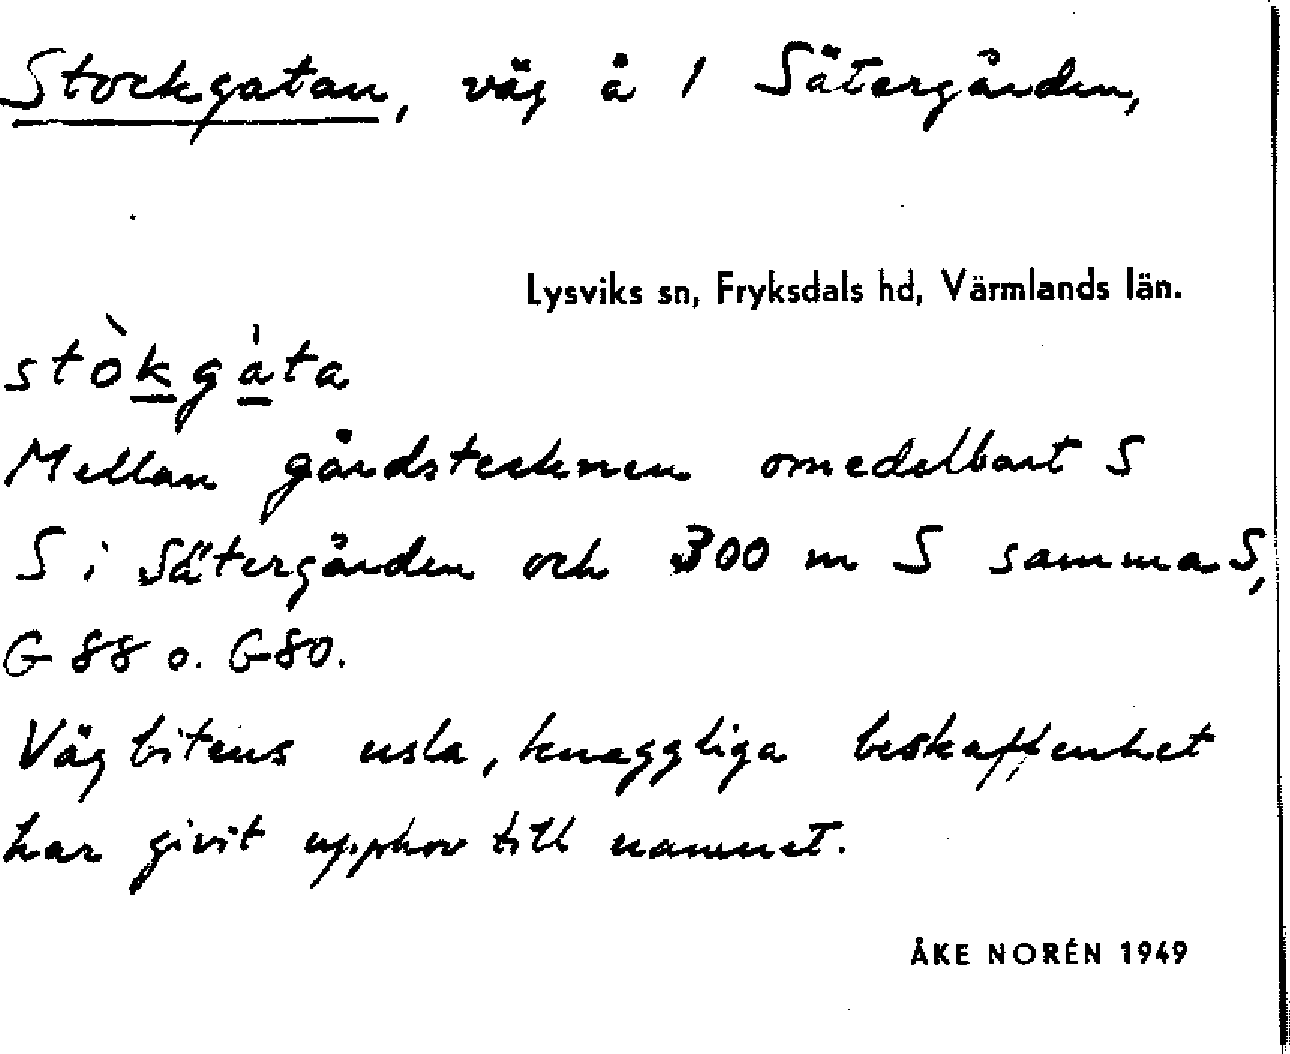 Stockgatan, väg å 1 Sätergården,
Lysviks sn, Fryksdals hd, Värmlands län.
stòkgàta
Mellan gårdstecknen omedelbart S
S i Sätergården och 300 m S samma S,
G 88 o. G 80.
Vägbitens usla, knaggliga beskaffenhet
har givit upphov till namnet.
ÅKE NORÉN 1949